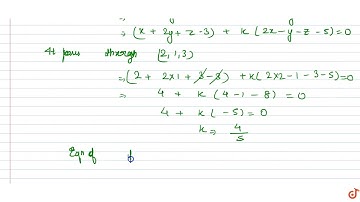 ⇒ (x + 2y + z - 3) + k (2x - y - z - 5) = 0
It pass through (2, 1, 3)
⇒ (2 + 2×1 + 3 - 3) + k (2×2 - 1 - 3 - 5) = 0
⇒ 4 + k (4 - 1 - 8) = 0
4 + k (-5) = 0
k ⇒ 4/5
Eqn of